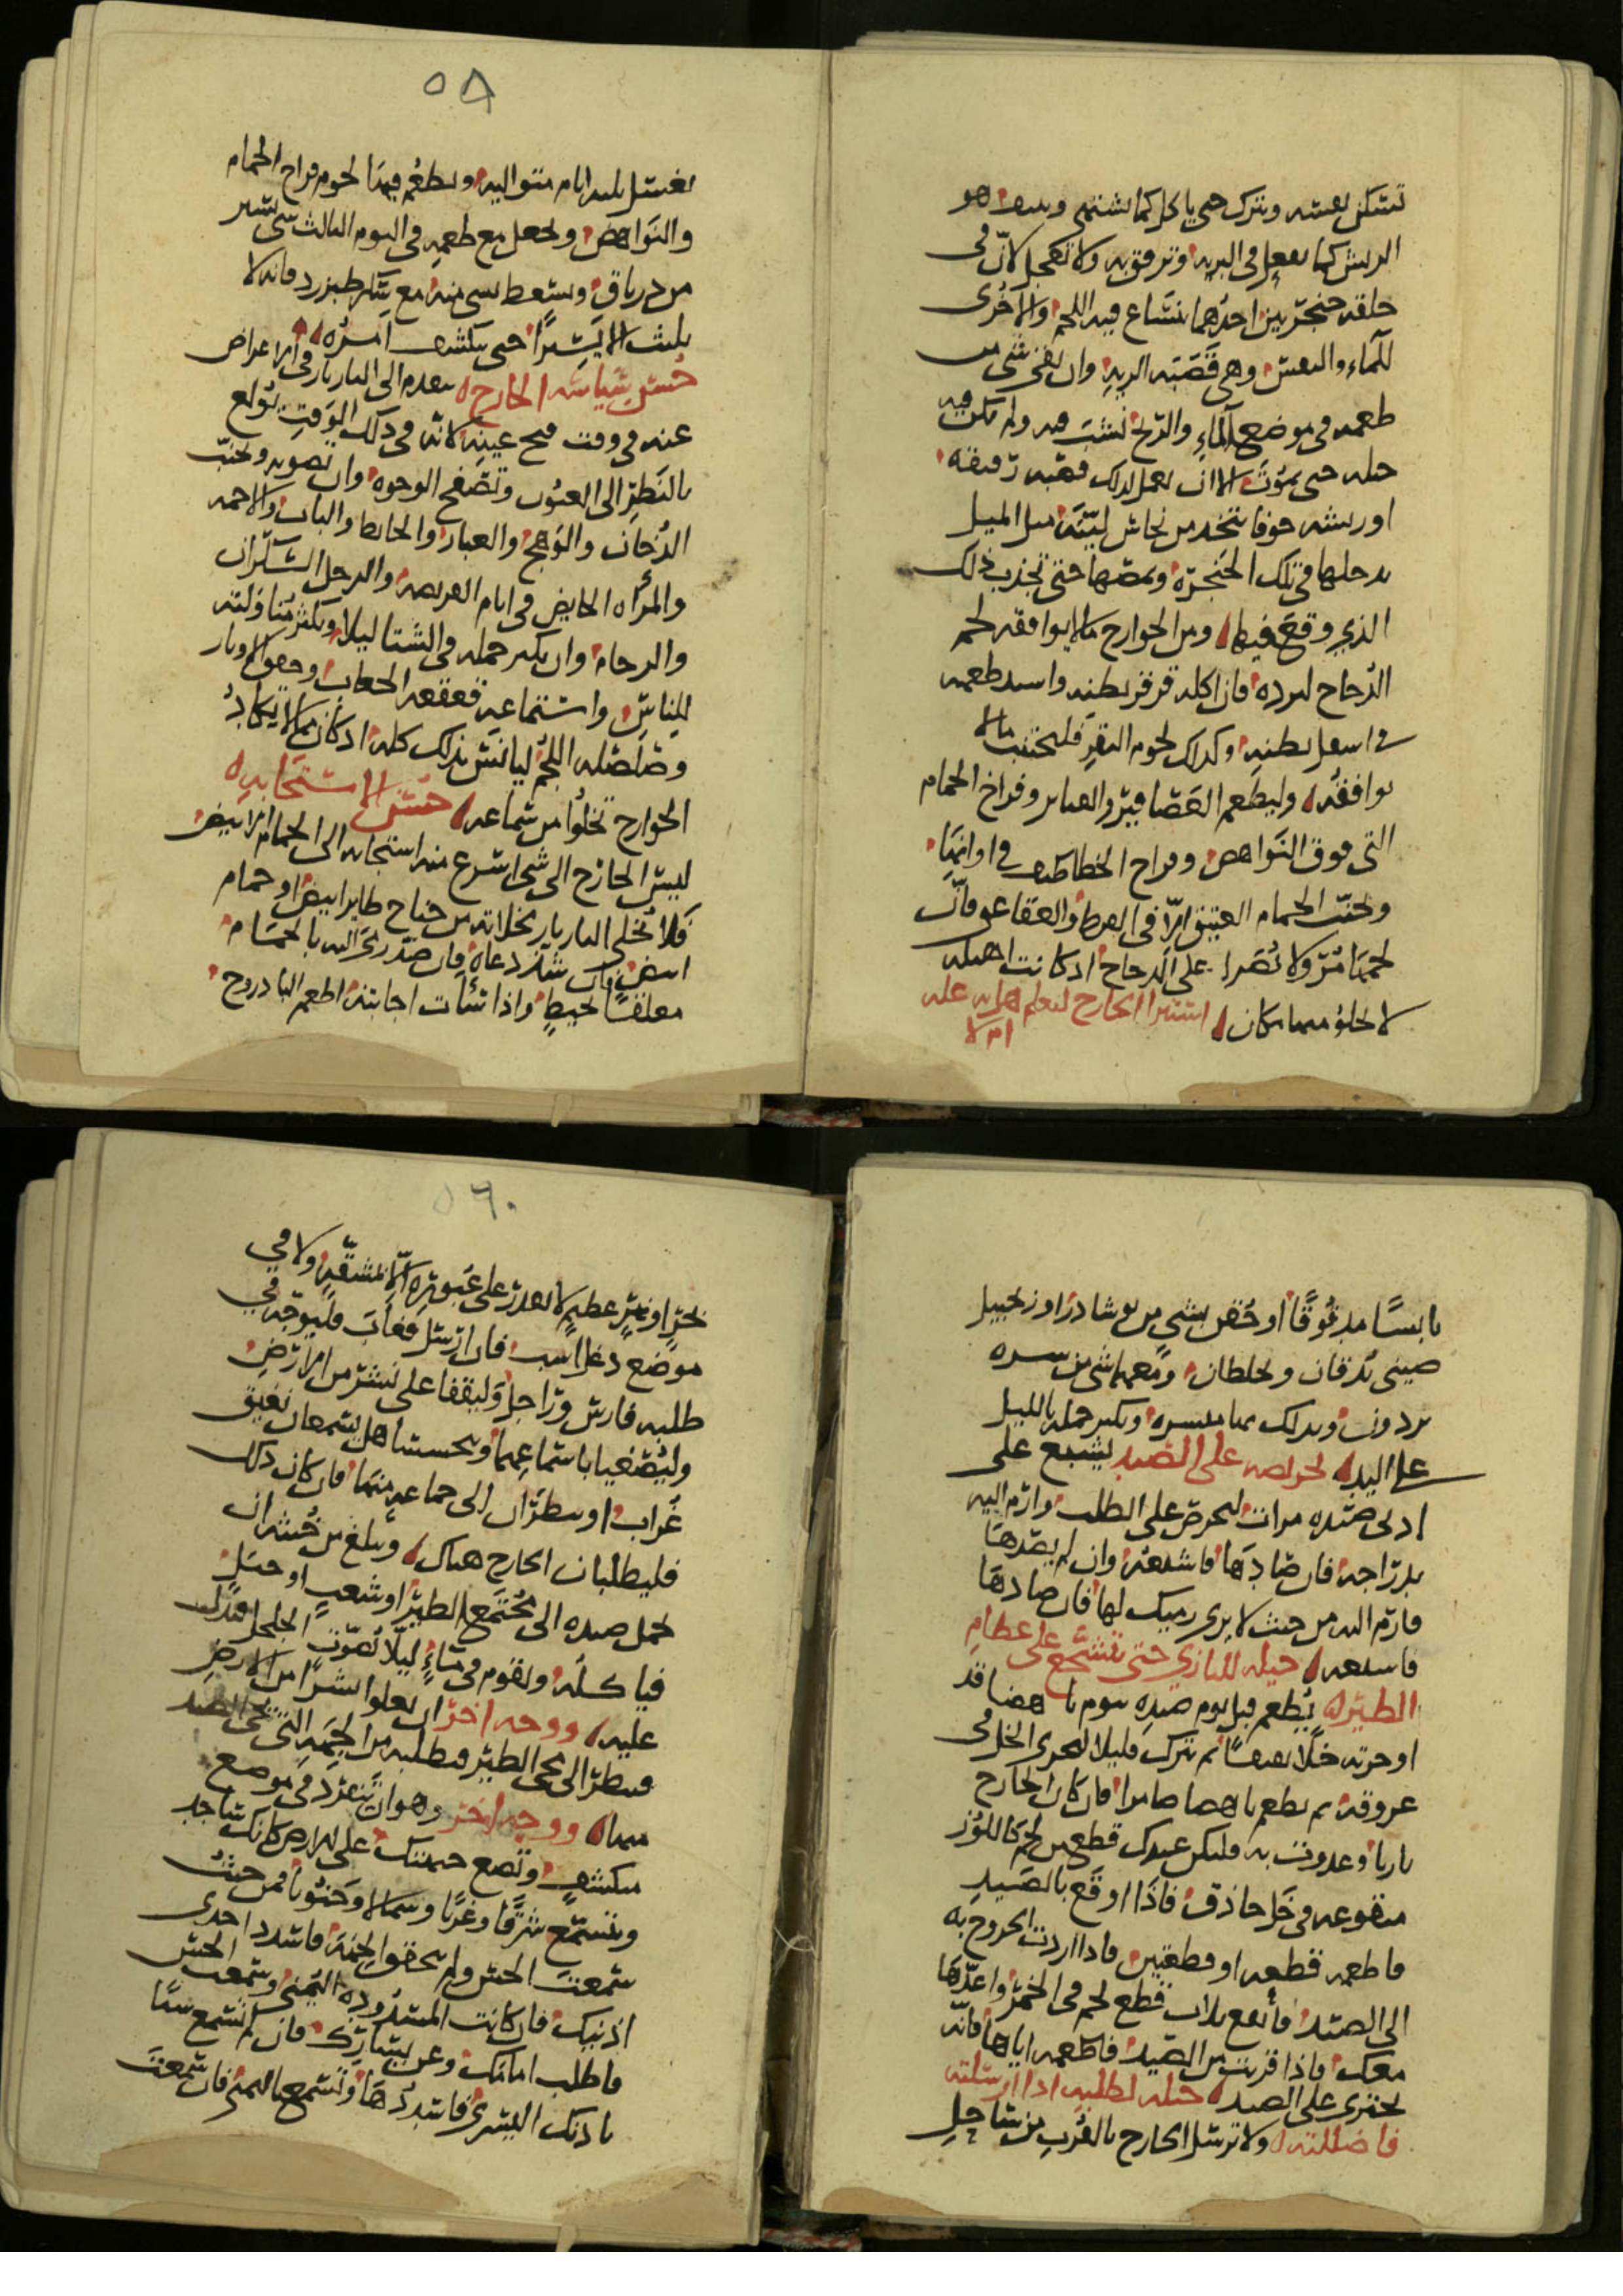 تسكن نفسه ويترك حتى ياكل كما يشتهي هو
الريش كما يفعل في البريه وترفق به ولا تعجل لانّ في
حلقه حنجرتين احدهما تنساع فيه اللحم والاخرى
للماء والنفس وهي قصبته الريه وان نفر شي من
طعمه في موضع الماء والريح نشب فيه ولم تكن فيه
حيله حتى يموت الا ان يعمل لذلك قصبه رقيقه
او ريشه جوفا تتخذ من نحاس ليّنه مثل الميل
يدخلها في تلك الحنجرة ويمصّها حتى تجذب ذلك
الذي وقع فيها ومن الجوارح ما لا يوافقه لحم
الدجاج لبرده فان اكله قرقر بطنه واسند طعمه
في اسفل بطنه وكذلك لحوم البقر فليجتنب ما لا
يوافقه وليطعم العصافير والقنابر وفراخ الحمام
التي فوق النواهض وفراخ الخطاطيف في اوانها
وتجنب الحمام العتيق امّا في القرط والعقاعق فانّ
لحمها مرّ ولا تصرا على الدجاج اذ كانت اهليه
لا تخلو منها مكان استبرا الجارح لتعلم اهل به عله
ام لا
٥٨
يغسل ثلثه ايام متواليه ويطعم فيها لحوم فراخ الحمام
والنواهض ويجعل مع طعمه في اليوم الثالث شي يسير
من درياق ويسعط بشي منه مع سكر طبرزد فانه لا
يلبث الا يسيرًا حتى ينكشف امره
حسن سياسه الجارح يتقدم الى البازيار في الاعراض
عنه في وقت فتح عينه لانه في ذلك الوقت يولع
بالنظر الى العيون وتصفح الوجوه وان يصونه ويجنبّه
الدخان والوهج والغبار والحايط والباب والاجمه
والمرأه الحايض في ايام القرىصه والرجل السكران
والزحام وان يكثر حمله في الشتا ليلا ويكثر مناولته
للناس واستماعه قعقعه الجعاب وخفق الاوتار
وصلصله اللجم ليانس بذلك كله اذ كان ممّا لا يكاد
الجوارح تخلوا من سماعه حسن الاستجابه
ليس الجارح الى شي اسرع منه استجابه الى الحمام الابيض
فلا تخلي البازيار مخلاته من جناح طاير ابيض او حمام
ابيض فان شذ دعاه فان صدّ رمى اليه بالحمام
معلقًا بخيطٍ واذا شئت اجابته اطعم الباذروج
يابسًا مدقوقًا او حُقن بشي من نوشادر او زنجبيل
صيني يدقان ويخلطان ومعهما شي من
برذون ويدلك بما منسره ويكثر حمله بالليل
على اليد لحرصه على الصيد يشبع على
ادنى صيده مرات ليحرص على الطلب وارم اليه
بدرّاجه فان صادها فاشبعه وان لم يصدها
فارم اليه من حيث لا يرى رميك لها فان صادها
فاشبعه حيله للبازي حتى تتشجع على عظام
الطير يطعم قبل يوم صيده بيوم ناهضا قد
اوجرته خلًا ثقيفًا ثم تترك قليلا ليجري الخل في
عروقه ثم يطعم ناهضا ضامرا فان كان الجارح
بازيا وغدوت به فليكن عندك قطع من لحم كاللوز
منقوعه في خل حاذق فاذا اوقع بالصيد
فاطعمه قطعه او قطعتين فاذا اردت الخروج به
الى الصيد فأنقع ثلاث قطع لحم في الخمر واعدّها
معك فاذا قربت من الصيد فاطعمه اياها فانه
يجترى على الصيد حيله لطلبه اذا ارسلته
فاضللته ولا ترسل الجارح بالقرب من ساحل
٥٦٠
بحرٍ او نهرٍ عظيمٍ لا يقدر على عبوره الّا بمشقّه ولا في
موضع دغل اشب فان ارسل فغاب فليوجّه في
طلبه فارس وراجل وليقفا على نشز من الارض
وليصغيا باسماعهما ويحسسا هل يسمعان نعيق
غراب او ينظران الى جماعه منها فان كان ذلك
فليطلبان الجارح هناك ويبلغ من خبثه ان
يحمل صيده الى مجتمع الطير او شعب او جبل
فياكله ويقوم في ماءٍ ليلا يصوّت الجلجل فيدل
عليه ووجه اخر ان يعلوا نشزًا من الارض
فينظر الى مجي الطير فيطلبه من الجهة التي يجي الصيد
منها ووجه اخر وهو ان تنفرد في موضع
منكشف وتضع جبينك على الارض كانك ساجد
وتتسمّع شرقًا وغربًا وشمالا وجنوبا فمن حيث
سمعت الحس ولم تحقق الجهة فاشدد احدى
اذنيك فان كانت المسدوده اليمنى وسمعت الحس
فاطلب امامك وعن يسارك فان لم تسمع شيًا
باذنك اليسرى فاشددها وتسمع باليمنى فان سمعت